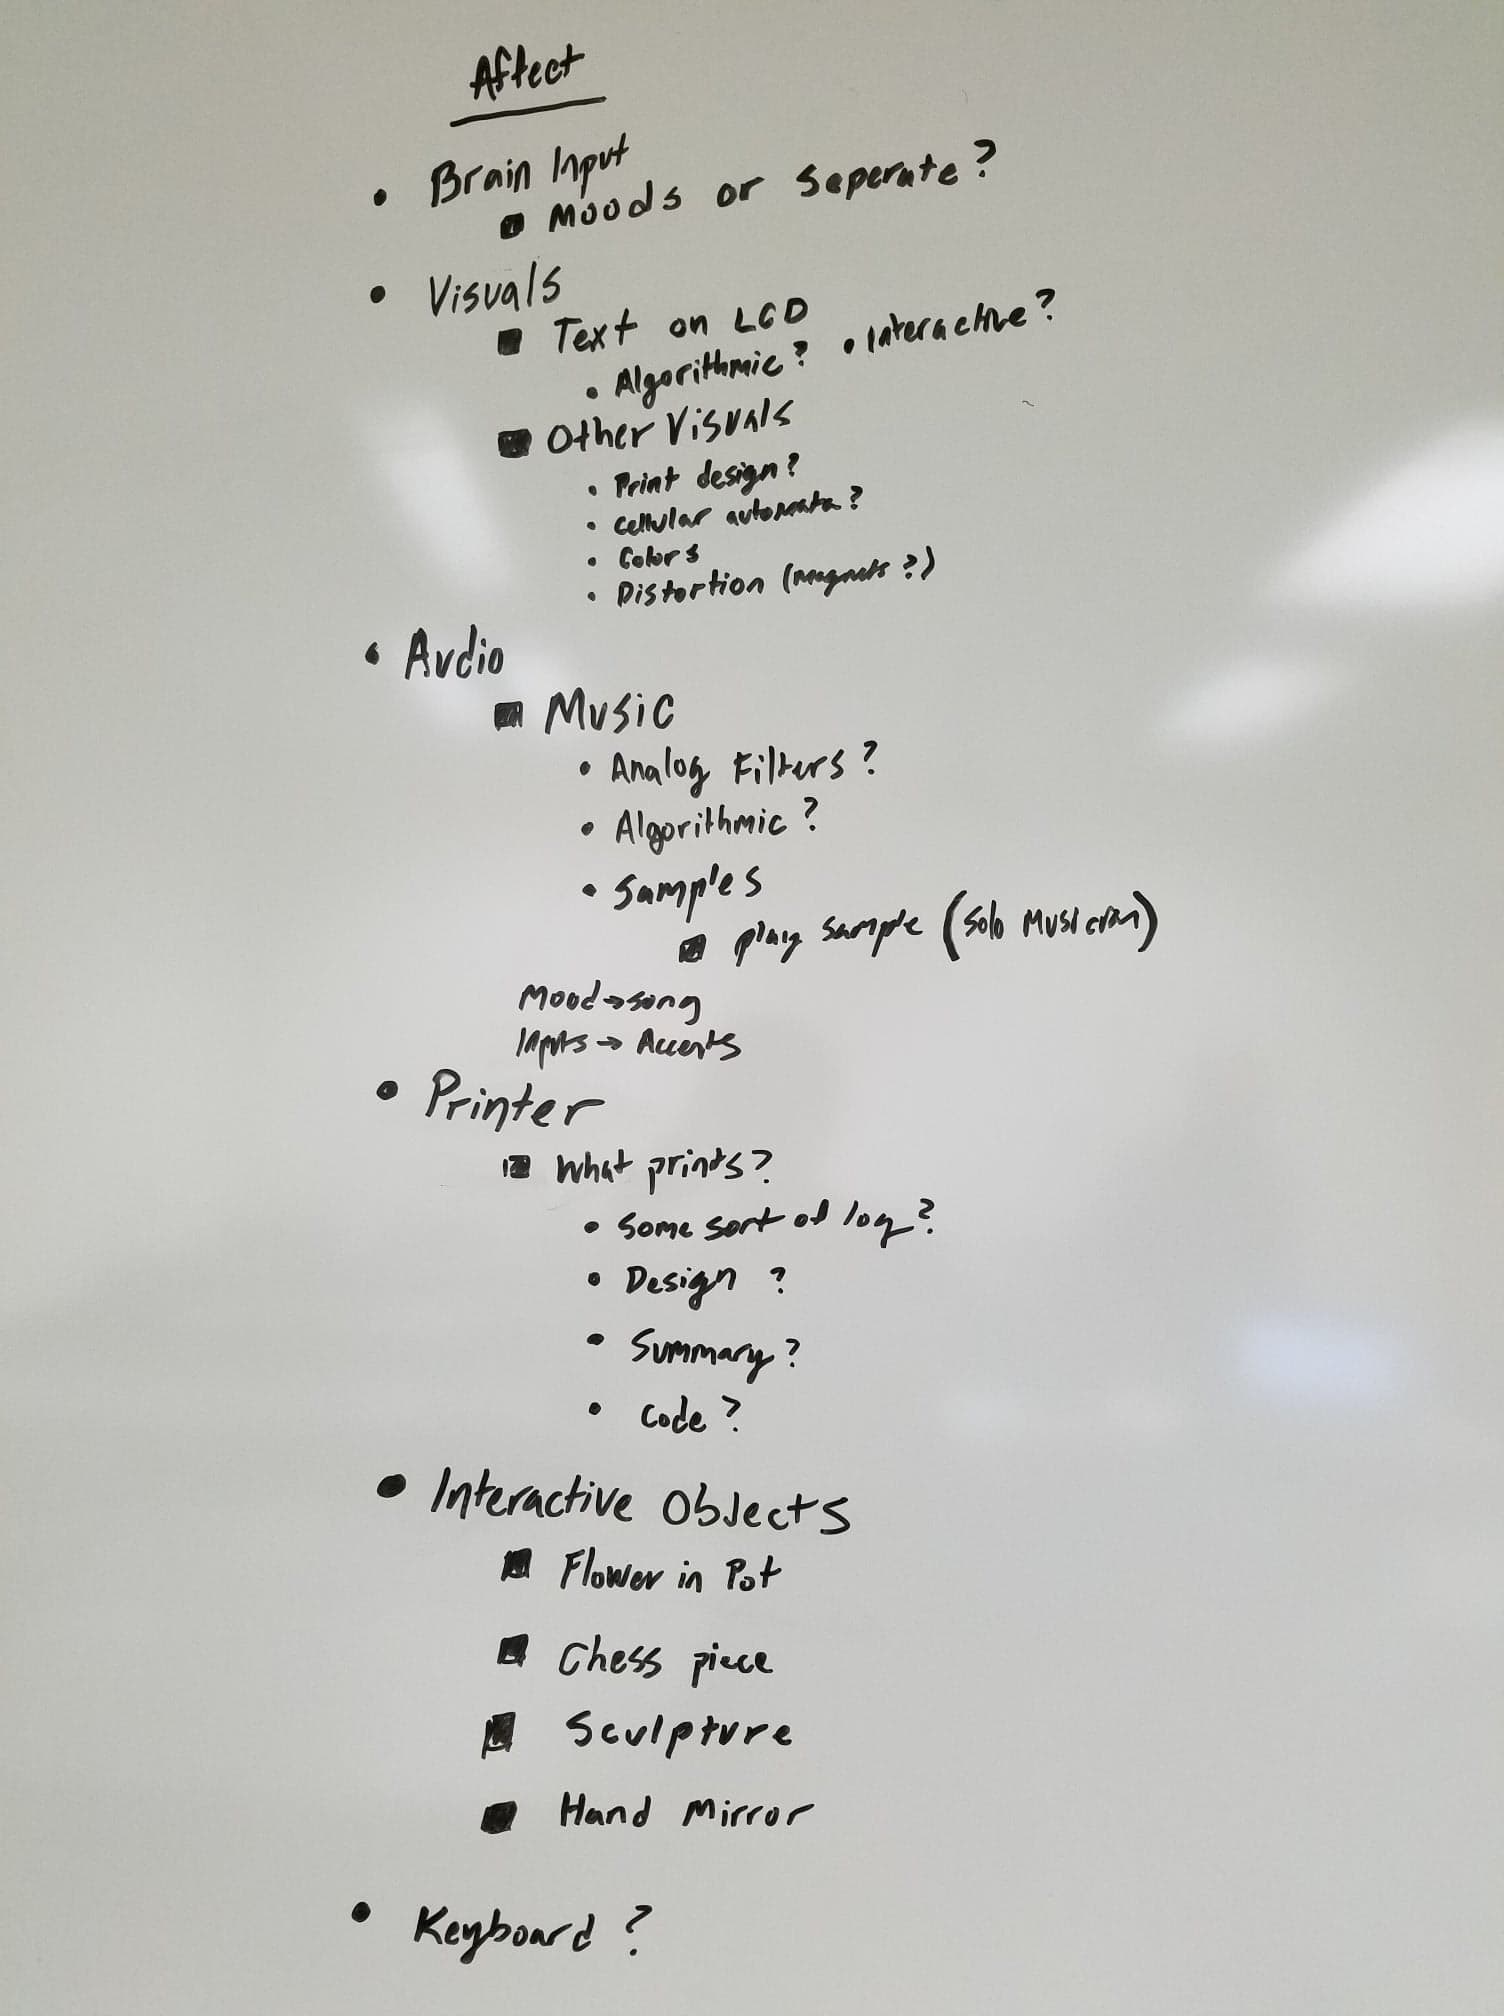 Affect
• Brain Input
▪ Moods or Seperate?
• Visuals
▪ Text on LCD
• Algorithmic? • Interactive?
▪ Other Visuals
• Print design?
• Cellular automata?
• Colors
• Distortion (Magnets?)
• Audio
▪ Music
• Analog Filters?
• Algorithmic?
• Samples
▪ Play sample (Solo Musician)
Mood→song
Inputs→Accents
• Printer
▪ What prints?
• Some sort of log?
• Design ?
• Summary?
• Code?
• Interactive Objects
▪ Flower in Pot
▪ Chess piece
▪ Sculpture
▪ Hand Mirror
• Keyboard ?